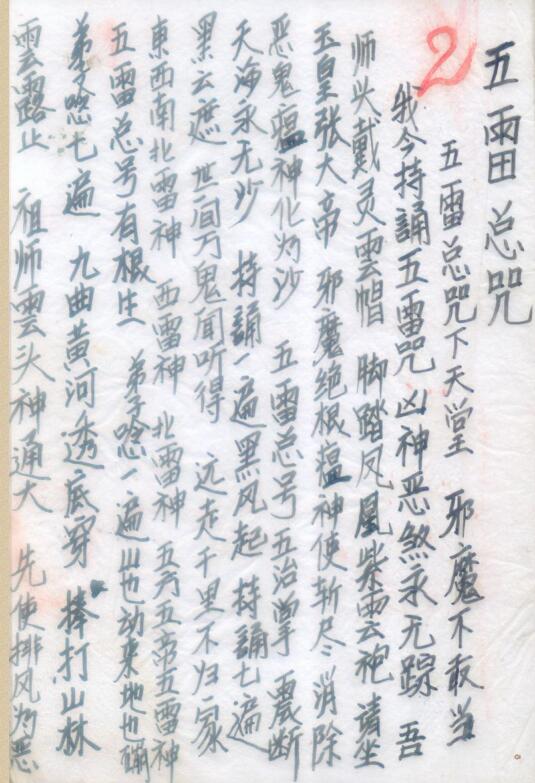 2
五雷总咒
五雷总咒下天堂 邪魔不敢当
我今持誦五雷咒 凶神恶煞永无踪 吾
师头戴灵雲帽 脚踏凤凰紫云袍 請坐
玉皇张大帝 邪魔绝根瘟神使斩尽尽消除
恶鬼瘟神化为沙 五雷总号五治掌 震断
天海永无沙 持誦一遍黑风起 持誦七遍
黑云遮 世间万鬼闻听得 远走千里不归家
東西南北雷神 西雷神 北雷神 五方五帝五雷神
五雷总号有根生 弟子唸一遍山也动來地也崩
弟子唸七遍 九曲黄河透底穿 捧打山林
雲露止 祖师雲头神通大 先使排风为恶